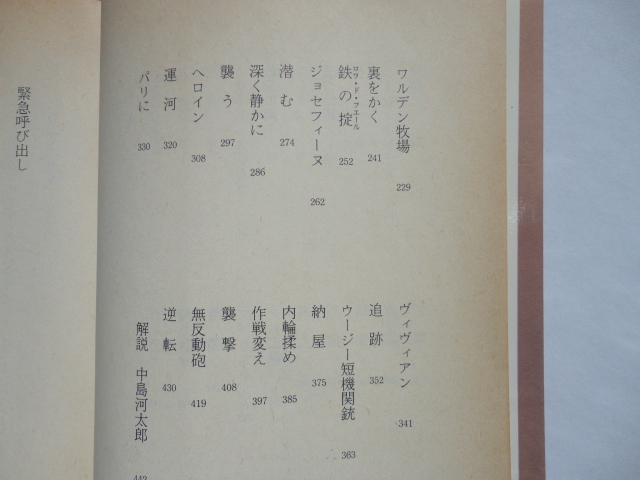 ワルデン牧場 229
裏をかく 241
鉄の掟 252
ロワ・ド・フエール
ジョセフィーヌ 262
潜む 274
深く静かに 286
襲う 297
ヘロイン 308
運河 320
パリに 330
ヴィヴィアン 341
追跡 352
ウージー短機関銃 363
納屋 375
内輪揉め 385
作戦変え 397
襲撃 408
無反動砲 419
逆転 430
解説 中島河太郎 442
緊急呼び出し